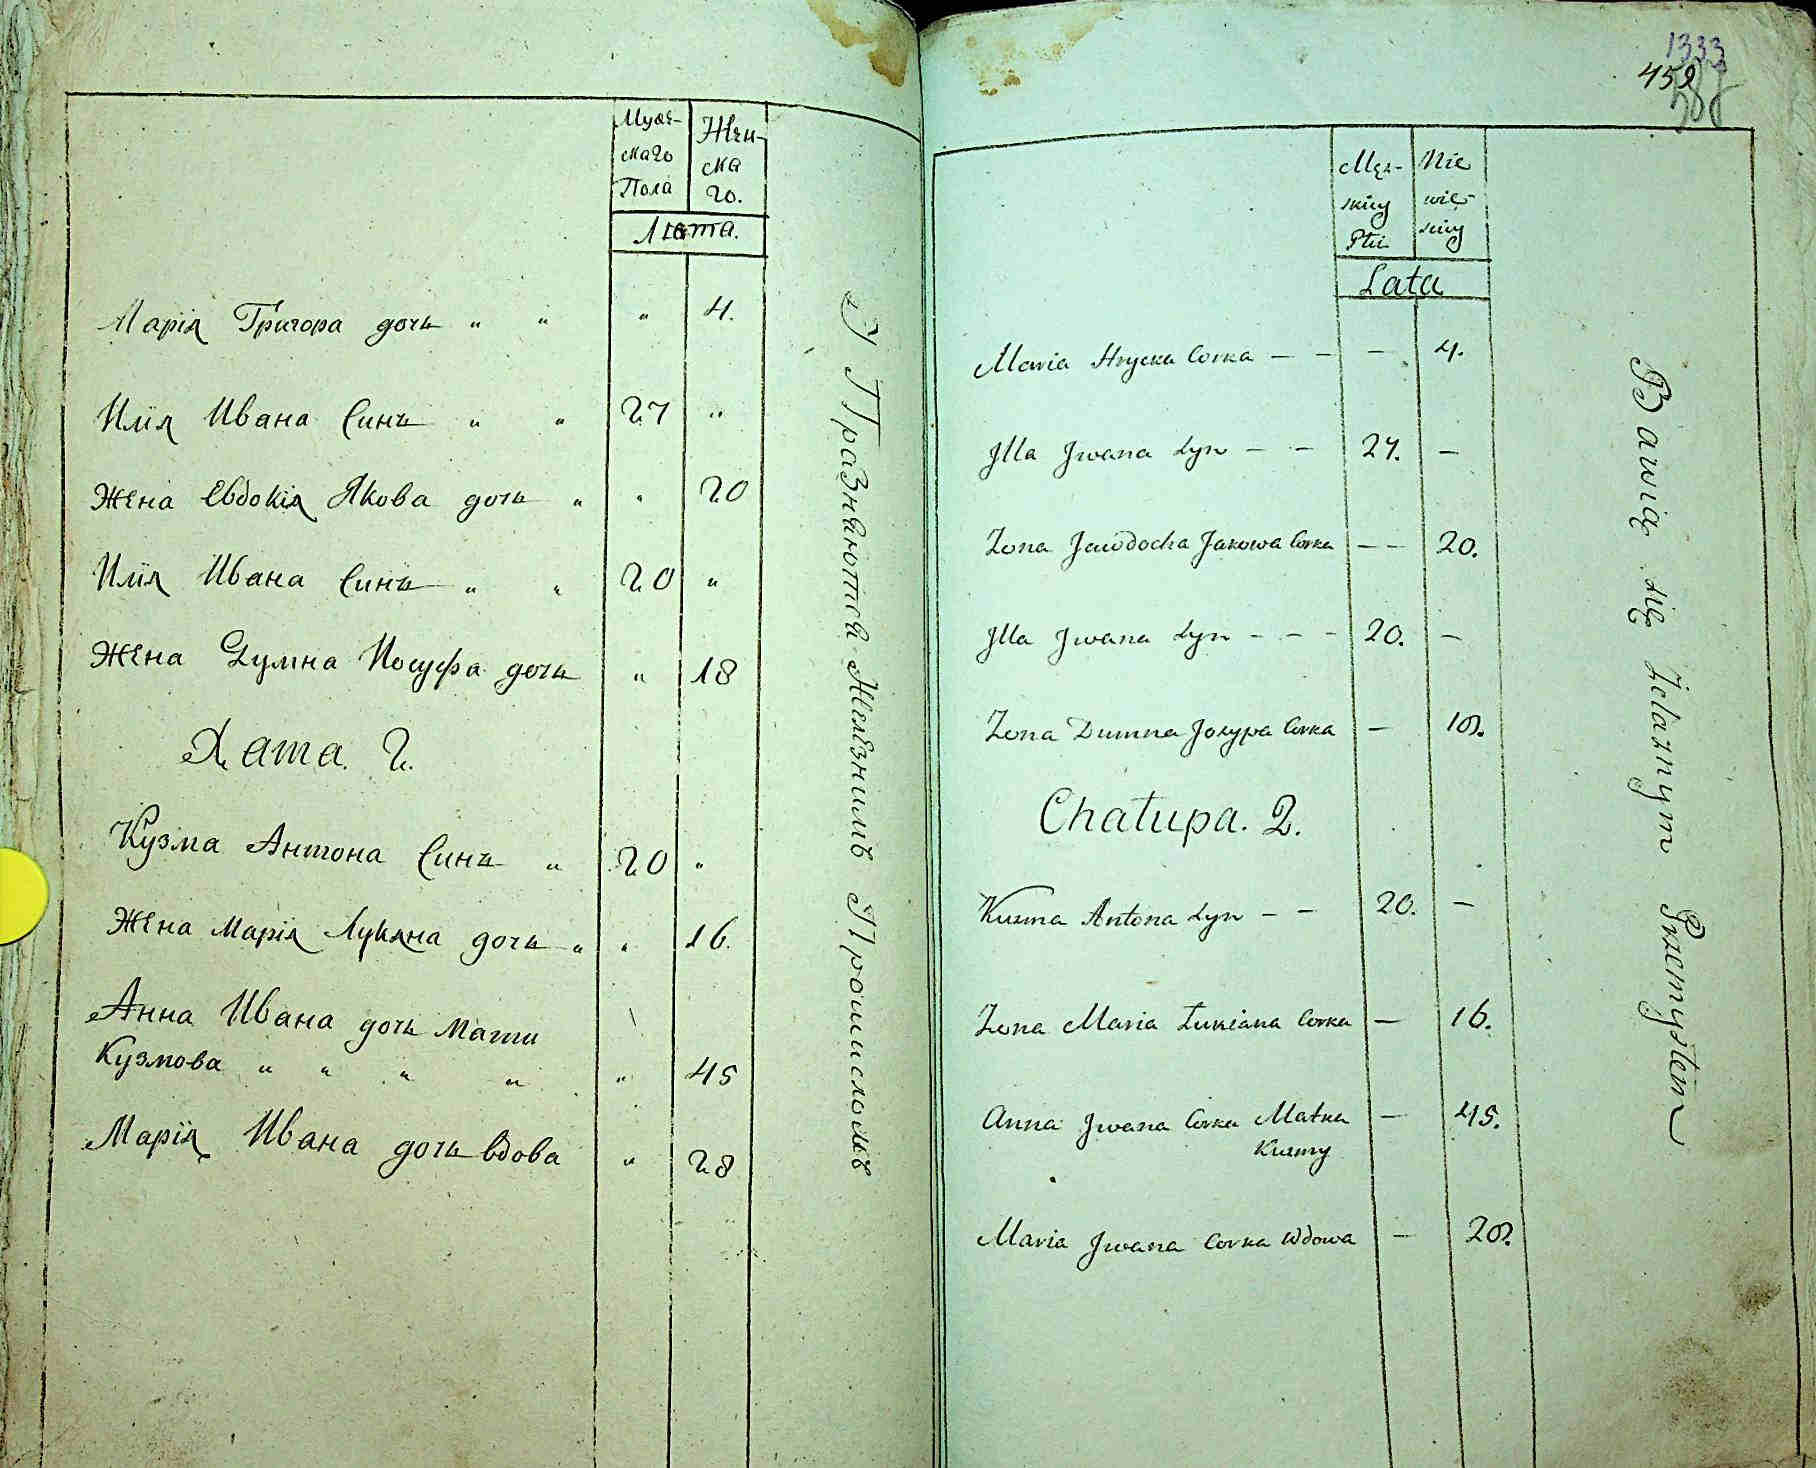 Муже-
скаго
Пола
Жен-
ска
го.
Лета.
Марія Григора дочь " " " 4.
Илія Ивана Синъ " " 27 "
Жена Евдокія Якова дочь " " 20
Илія Ивана Синъ " " 20 "
Жена Думна Иосуфа дочь " 18
Хата. 2.
Кузма Антона Синъ " 20 "
Жена Марія Лукяна дочь " " 16.
Анна Ивана дочь Мати
Кузмова " " " " " 45
Марія Ивана дочь вдова " 28
Празнаются Желѣзнимъ Промисломъ
1333
459
Męz-
skiey
Płci
Nie
wie-
skiey
Lata
Maria Hrycka Corka – – – 4.
Jlla Jwana Syn – – 27. –
Zona Jewdocha Jakowa Corka – – 20.
Jlla Jwana Syn – – – 20. –
Zona Dumna Josypa Corka – 18.
Chałupa. 2.
Kuzma Antona Syn – – 20. –
Zona Maria Łukiana Corka – 16.
Anna Jwana Corka Matka – 45.
Kuzmy
Maria Jwana Corka Wdowa – 28.
Bawią się Żelaznym Przemysłem